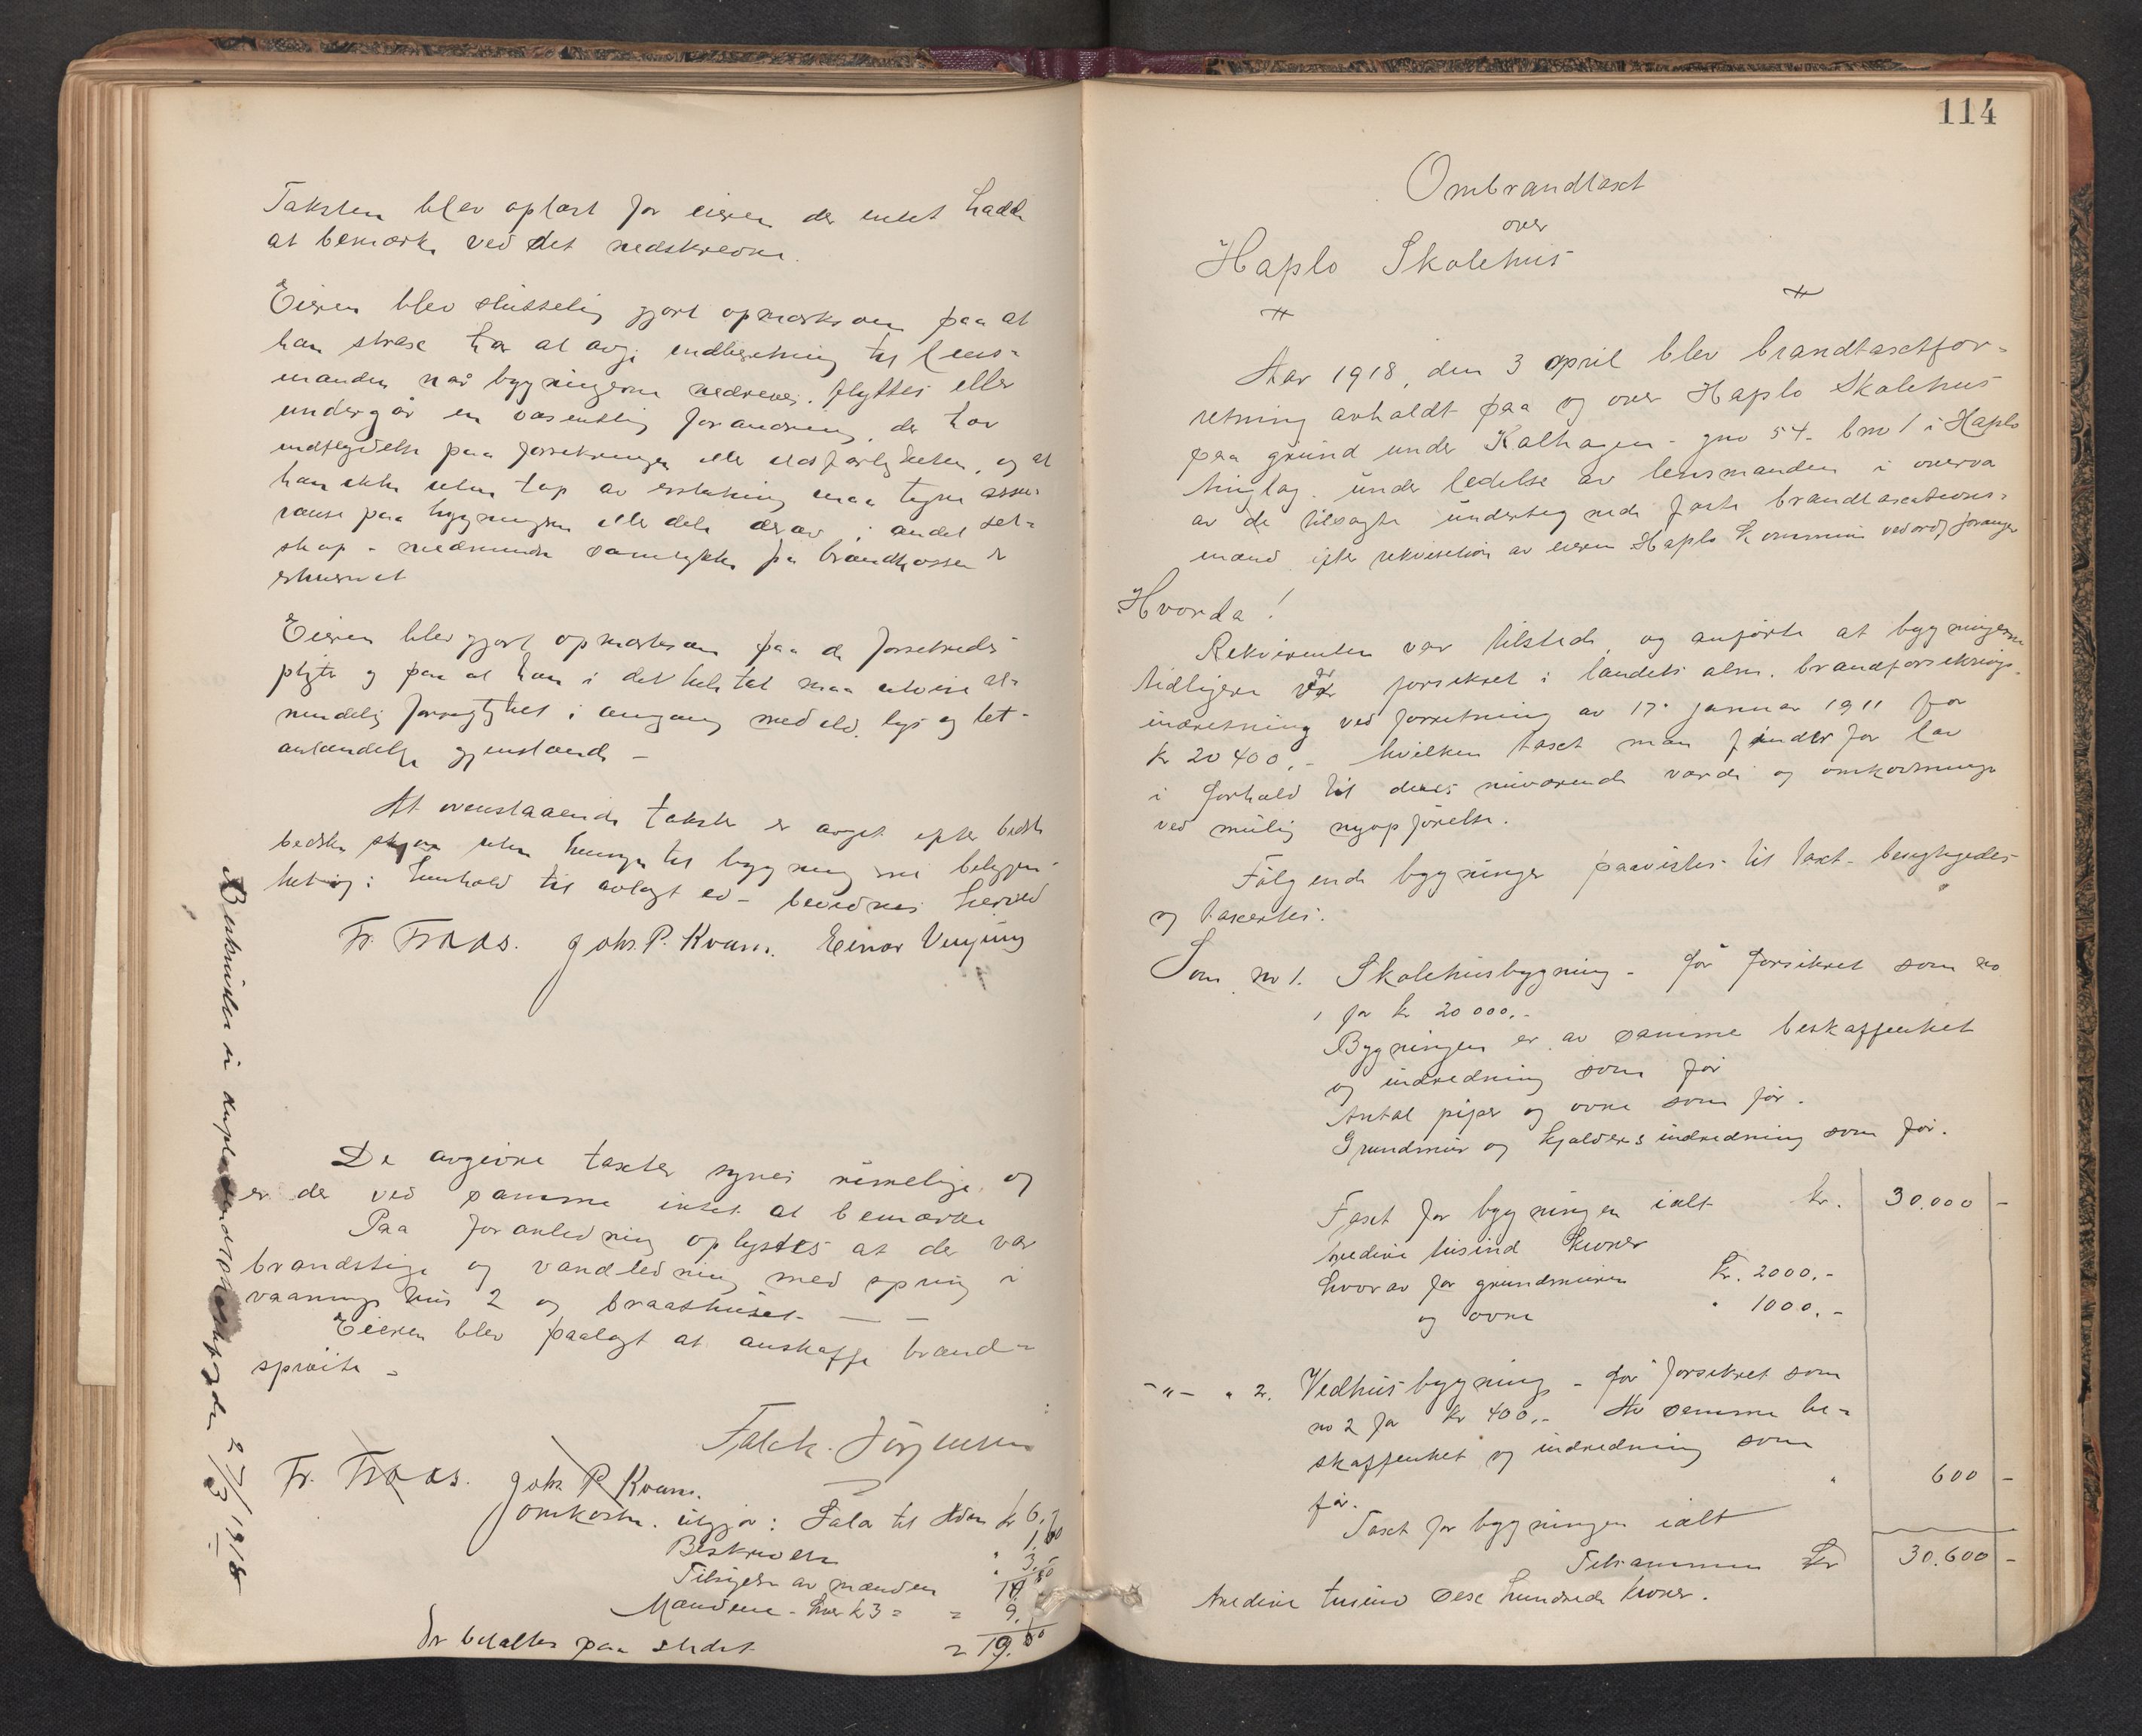 Taksten blev oplæst for eieren der intet hadde
at bemærke ved det nedskrevne.
Eieren blev slutselig gjort opmerksom paa at
han strax har at avgi indberetning til lens-
manden når bygningerne nedrives, flyttes eller
undergår en væsentlig forandring, der har
indflydelse paa forsikringen eller ildsfarligheten, og at
han ikke uten tap av erstatning maa tegne assu-
ranse paa bygningen eller dele derav i andet sel-
skap - medmindre samtykke fra brandkassen er
erhvervet
Eieren blev gjort opmerksom paa de forsikredes
pligter og paa at han i det hele tat maa utvise al-
mindelig forsigtighet i omgang med ild, lys og let-
antændelige gjenstande -
At ovenstaaende takster er avgit efter bedste
bedste skjøn uten hensyn til bygningernes beliggen-
het og i henhold til avlagt ed - bevidnes herved
Fr. Fraas. Johs. P. Kvam. Einar
De avgivne taxter synes rimelige og
er der ved samme intet at bemærke
Paa foranledning oplystes at der var
brandstige og vandledning med spring i
vaanings hus 2 og braathuset. — —
Eieren blev paalagt at anskaffe brand-
sprøite -
Falck. Jörgensen
Fr. Fraas. Johs. P. Kvam.
Omkostn. utgjør: Sala til kr 6,
Beskrivelse " 3,50
Tilsigelse av mændene
Mændene - hver k 3 = = 9.
Er betalt paa stedet = 19.
27/3 1918
114
Ombrandtaxt
over
Haplo Skolehus
Aar 1918, den 3 april blev brandtaxtfor-
retning avholdt paa og over Haplo Skolehus
paa grund under Kalhagen - gno 54 - bno 1 i Haplo
tinglag. under ledelse av lensmanden i overvær
av de tilsagte undertegnede faste brandtaxations-
mænd efter rekvisition av eieren Haplo kommune ved ordf
Hvorda!
Rekvirenten var tilstede og anførte at bygningerne
tidligere er forsikret i landets alm. brandforsikrings-
indretning ved forretning av 17. januar 1911 for
kr 20400,- hvilken taxt man finder for lav
i forhold til deres nuværende værdi og omkostninger
ved mulig nyopførelse.
Følgende bygninger paavistes til taxt - besigtigedes
og taxertes.
Som no 1. Skolehusbygning - før forsikret som no
1 for kr 20000,-
Bygningen er av samme beskaffenhet
og indredning som før
Antal piper og ovne som før.
Grundmur og kjelderes indredning som før.
Taxt for bygningen ialt kr. 30.000 -
tredive tusind kroner
hvorav for grundmuren kr. 2000,-
og ovne " 1000,-
-"- " 2. Vedhusbygning - før forsikret som
no 2 for kr 400,- Av samme be-
skaffenhet og indredning som
før.
Taxt for bygningen ialt " 600 -
Tilsammen kr 30.600 -
tredive tusind sex hundrede kroner.